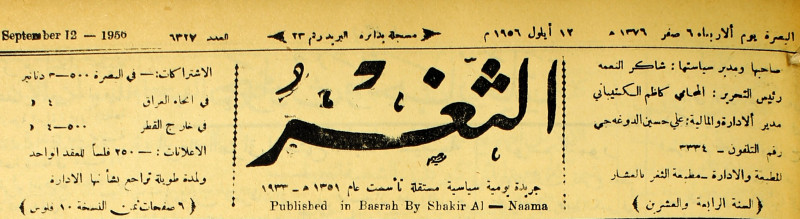 البصرة يوم ألاربعاء ٦ صفر ١٣٧٦ ه ١٢ أيلول ١٩٥٦ م مسجلة بدائرة البريد رقم ٢٣ العدد ٦٣٢٧ September 12 – 1956
صاحبها ومدير سياستها : شاكر النعمه
رئيس التحرير : المحامي كاظم الكشيباني
مدير ألادارة والمالية : علي حسين الدوغه جي
رقم التلفون - ٣٣٣٤
المطبعة والادارة - مطبعة الثغر بالعشار
( السنة الرابعة والعشرين )
الثغر
جريدة يومية سياسية مستقلة تأسست عام ١٣٥١ ه - ١٩٣٣
Published in Basrah By Shakir Al – Naama
الاشتراكات : – في البصرة ٥٠٠ – ٣ دنانير
في انحاء العراق ٤ «
في خارج القطر ٥٠٠ – ٤ «
الاعلانات : – ٢٥٠ فلساً للعقد الواحد
ولمدة طويلة تراجع بشأنها الادارة
( ٦ صفحات ثمن النسخة ١٠ فلوس )